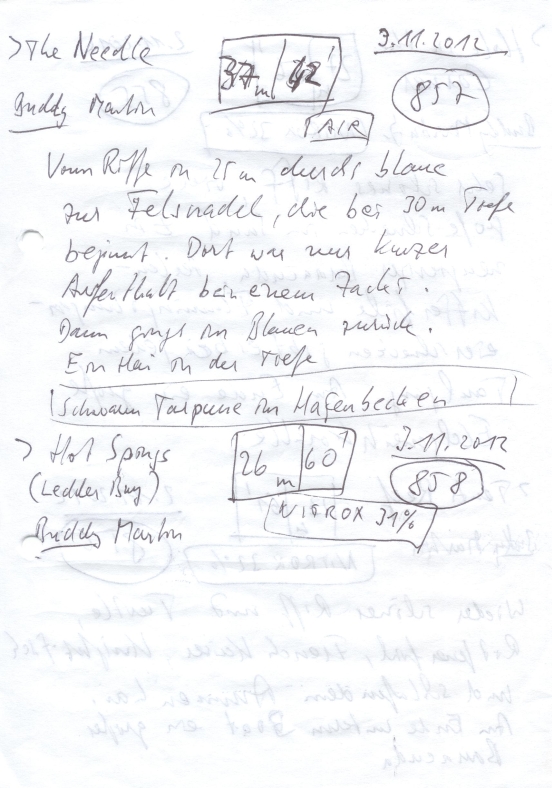 > The Needle
37m 42'
3.11.2012
Buddy Martin
857
AIR
Vom Riffe in 25m durchs blaue
zur Felsnadel, die bei 30m Tiefe
beginnt. Dort war nur kurzer
Aufenthalt bei einem Zackt.
Dann gings im Blauen zurück.
Ein Hai in der Tiefe
Schwarm Tarpune im Hafenbecken
> Hot Springs
26m 60'
3.11.2012
(Ledder Bay)
858
Buddy Martin
NITROX 31%